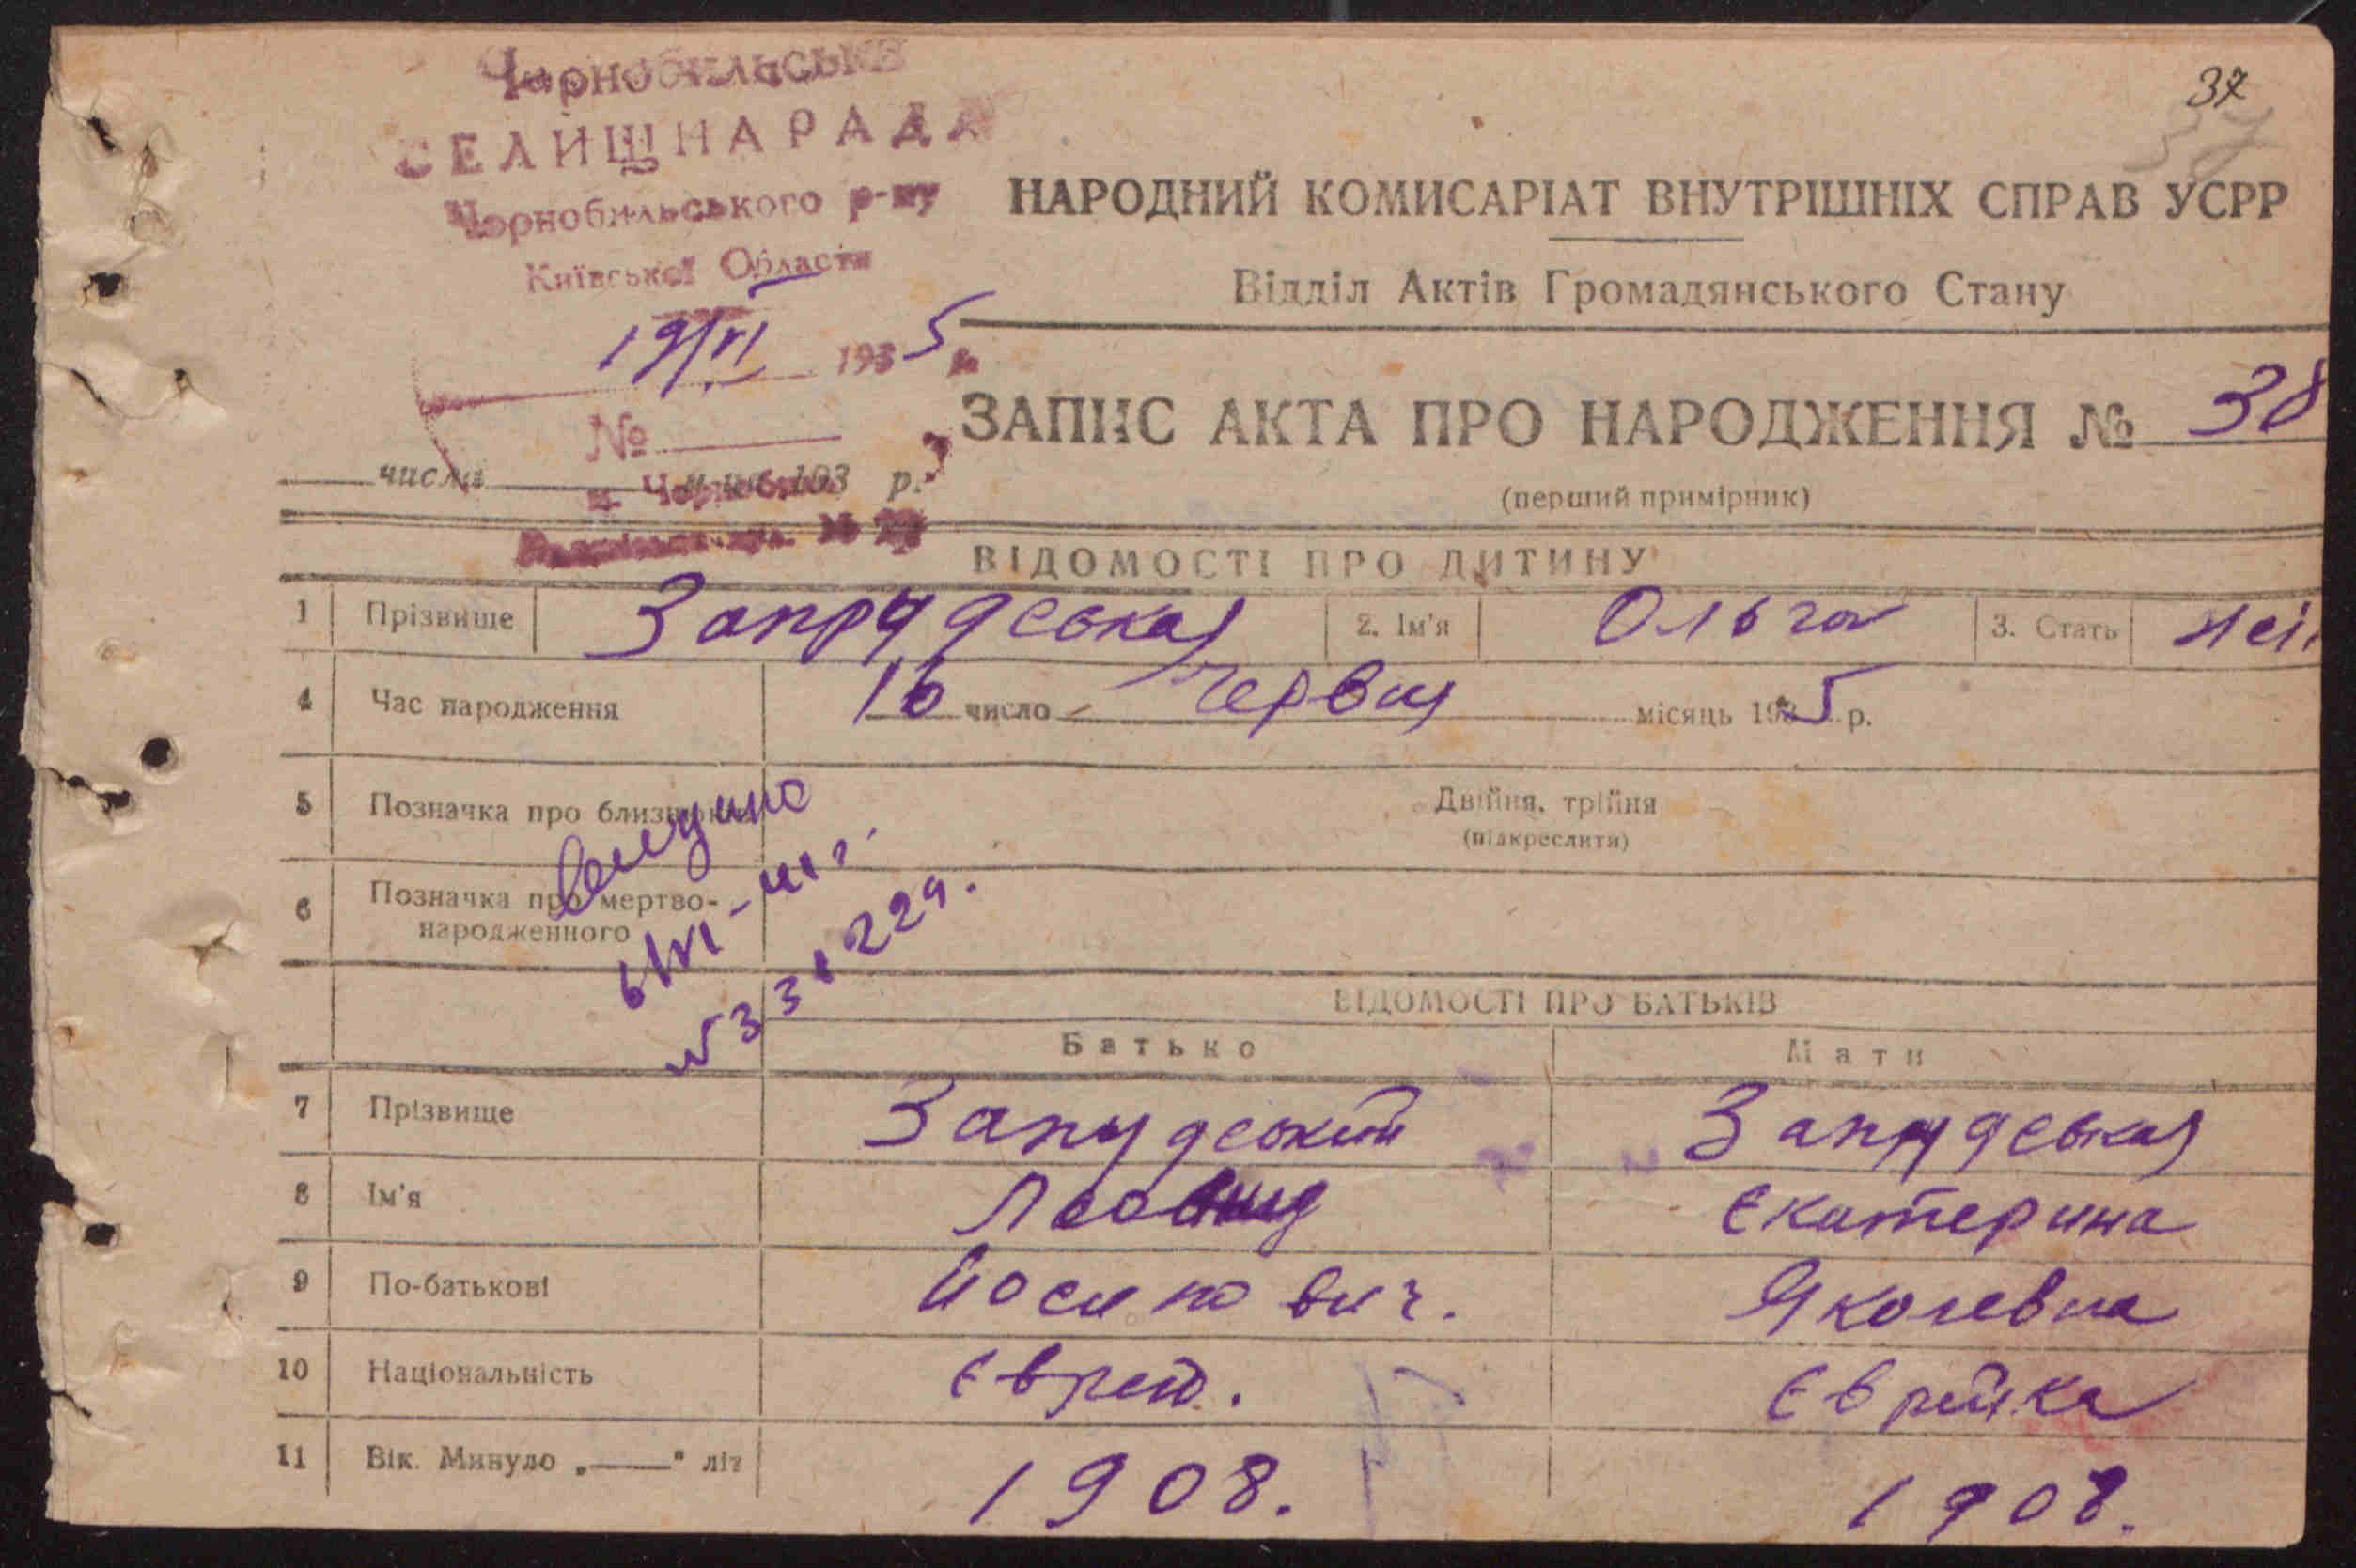 37
Чорнобильська
СЕЛИЩНА РАДА
Чорнобильського р-ну
Київської Области
19/VI 1935 р.
№
НАРОДНИЙ КОМИСАРІАТ ВНУТРІШНІХ СПРАВ УСРР
Відділ Актів Громадянського Стану
ЗАПИС АКТА ПРО НАРОДЖЕННЯ № 38
числа 193 р.
(перший примірник)
ВІДОМОСТІ ПРО ДИТИНУ
1 Прізвище Запрудеська 2. Ім'я Ольга 3. Стать
4 Час народження 16 число Червня місяць 1935 р.
5 Позначка про близнюків Двійня, трійня
(підкреслити)
6 Позначка про мертво-
народженного
ВІДОМОСТІ ПРО БАТЬКІВ
Батько Мати
7 Прізвище Запудеский Запрудеська
8 Ім'я Леонид Екатерина
9 По-батькові Йосипович. Яколевна
10 Національність Єврей. Єврейка
11 Вік. Минуло „——" літ 1908. 1908.